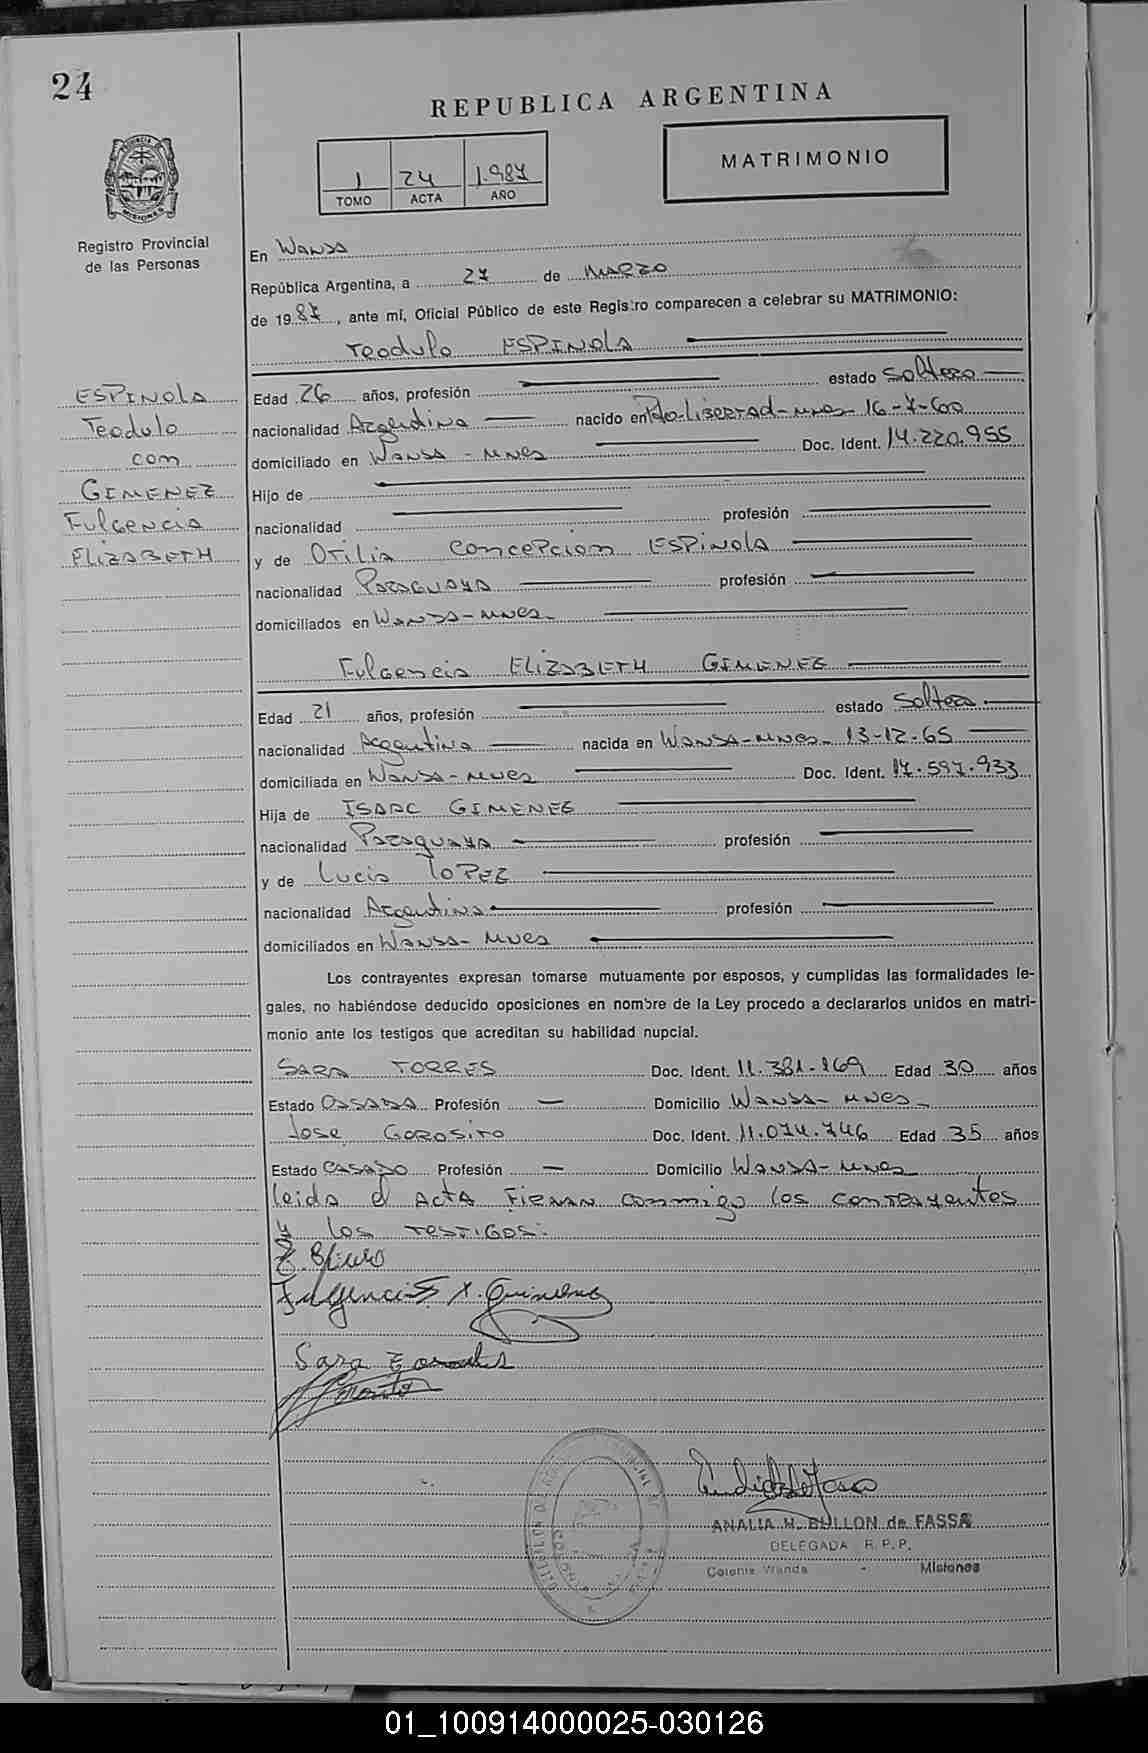 24
REPUBLICA ARGENTINA
MATRIMONIO
1 24 1.987
TOMO ACTA AÑO
PROVINCIA DE
MISIONES
Registro Provincial
de las Personas
En WANDA
República Argentina, a 27 de MARZO
de 1987, ante mí, Oficial Público de este Registro comparecen a celebrar su MATRIMONIO:
Teodulo ESPINOLA
ESPINOLA
Teodulo
con
GIMENEZ
Fulgencia
ELIZABETH
Edad 26 años, profesión estado Soltero
nacionalidad Argentina nacido en Pto-Libertad-Mnes- 16-7-60
domiciliado en WANDA - Mnes Doc. Ident. 14.220.955
Hijo de
nacionalidad profesión
y de OTILIA CONCEPCION ESPINOLA
nacionalidad Paraguaya profesión
domiciliados en WANDA-Mnes-
Fulgencia ELIZABETH GIMENEZ
Edad 21 años, profesión estado Soltera
nacionalidad Argentina nacida en WANDA-Mnes- 13-12-65
domiciliada en WANDA-Mnes Doc. Ident. 17.597.933
Hija de ISAAC GIMENEZ
nacionalidad Paraguaya profesión
y de Lucia LOPEZ
nacionalidad Argentina profesión
domiciliados en WANDA- Mnes
Los contrayentes expresan tomarse mutuamente por esposos, y cumplidas las formalidades le-
gales, no habiéndose deducido oposiciones en nombre de la Ley procedo a declararlos unidos en matri-
monio ante los testigos que acreditan su habilidad nupcial.
SARA TORRES Doc. Ident. 11.381.169 Edad 30 años
Estado CASADA Profesión — Domicilio WANDA- Mnes-
Jose GOROSITO Doc. Ident. 11.074.746 Edad 35 años
Estado CASADO Profesión — Domicilio WANDA-Mnes
Leida el ACTA FIRMAN conmigo los contrayentes
y los TESTIGOS:
Sara
ANALIA H. BULLON de FASSA
DELEGADA R.P.P.
Colonia Wanda - Misiones
01_100914000025-030126